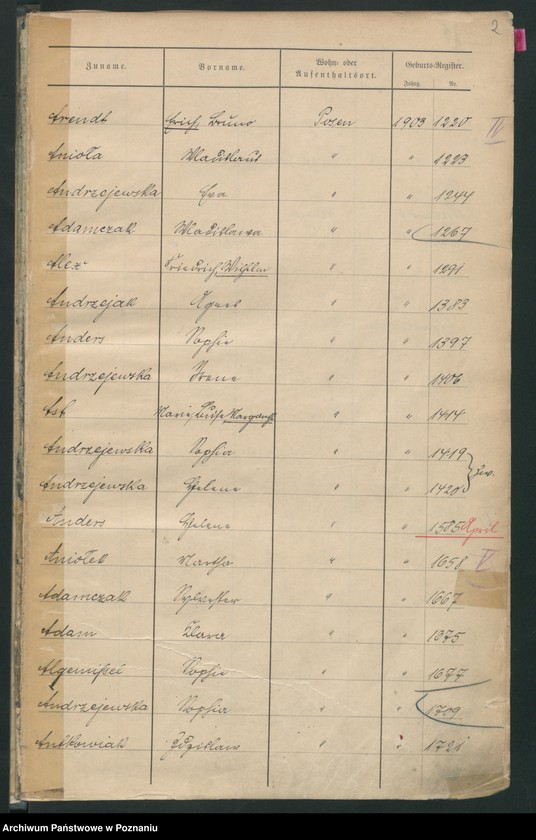 2
Zuname. Vorname. Wohn- oder Aufenthaltsort. Geburts-Register.
Jahrg. Nr.
Arendt Erich Bruno Posen 1903 1220 IV
Anioła Wladislaus " " 1223
Andrzejewska Eva " " 1244
Adamczak Wladislawa " " 1267
Alex Friedrich Wilhelm " " 1291
Andrzejak Agnes " " 1383
Anders Sophie " " 1397
Andrzejewska Irene " " 1406
Ast Marie, Luise, Margareth " " 1414
Andrzejewska Sophia " " 1419
Andrzejewska Helene " " 1420
Anders Helene " " 1585 April
Aniołek Martha " " 1658 V
Adamczak Sylvester " " 1667
Adam Clara " " 1675
Sophie " " 1677
Andrzejewska Sophia " " 1709
Antkowiak Zdzislaw " " 1721
Archiwum Państwowe w Poznaniu